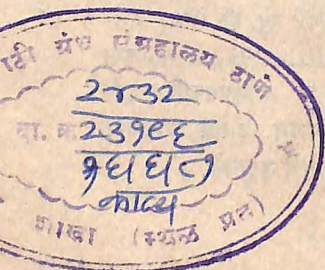 ाठी ग्रंथ संग्रहालय ठाणे
२४३२
दा. क्र. २३१९६
काव्य
शाखा (स्थळ प्रत)